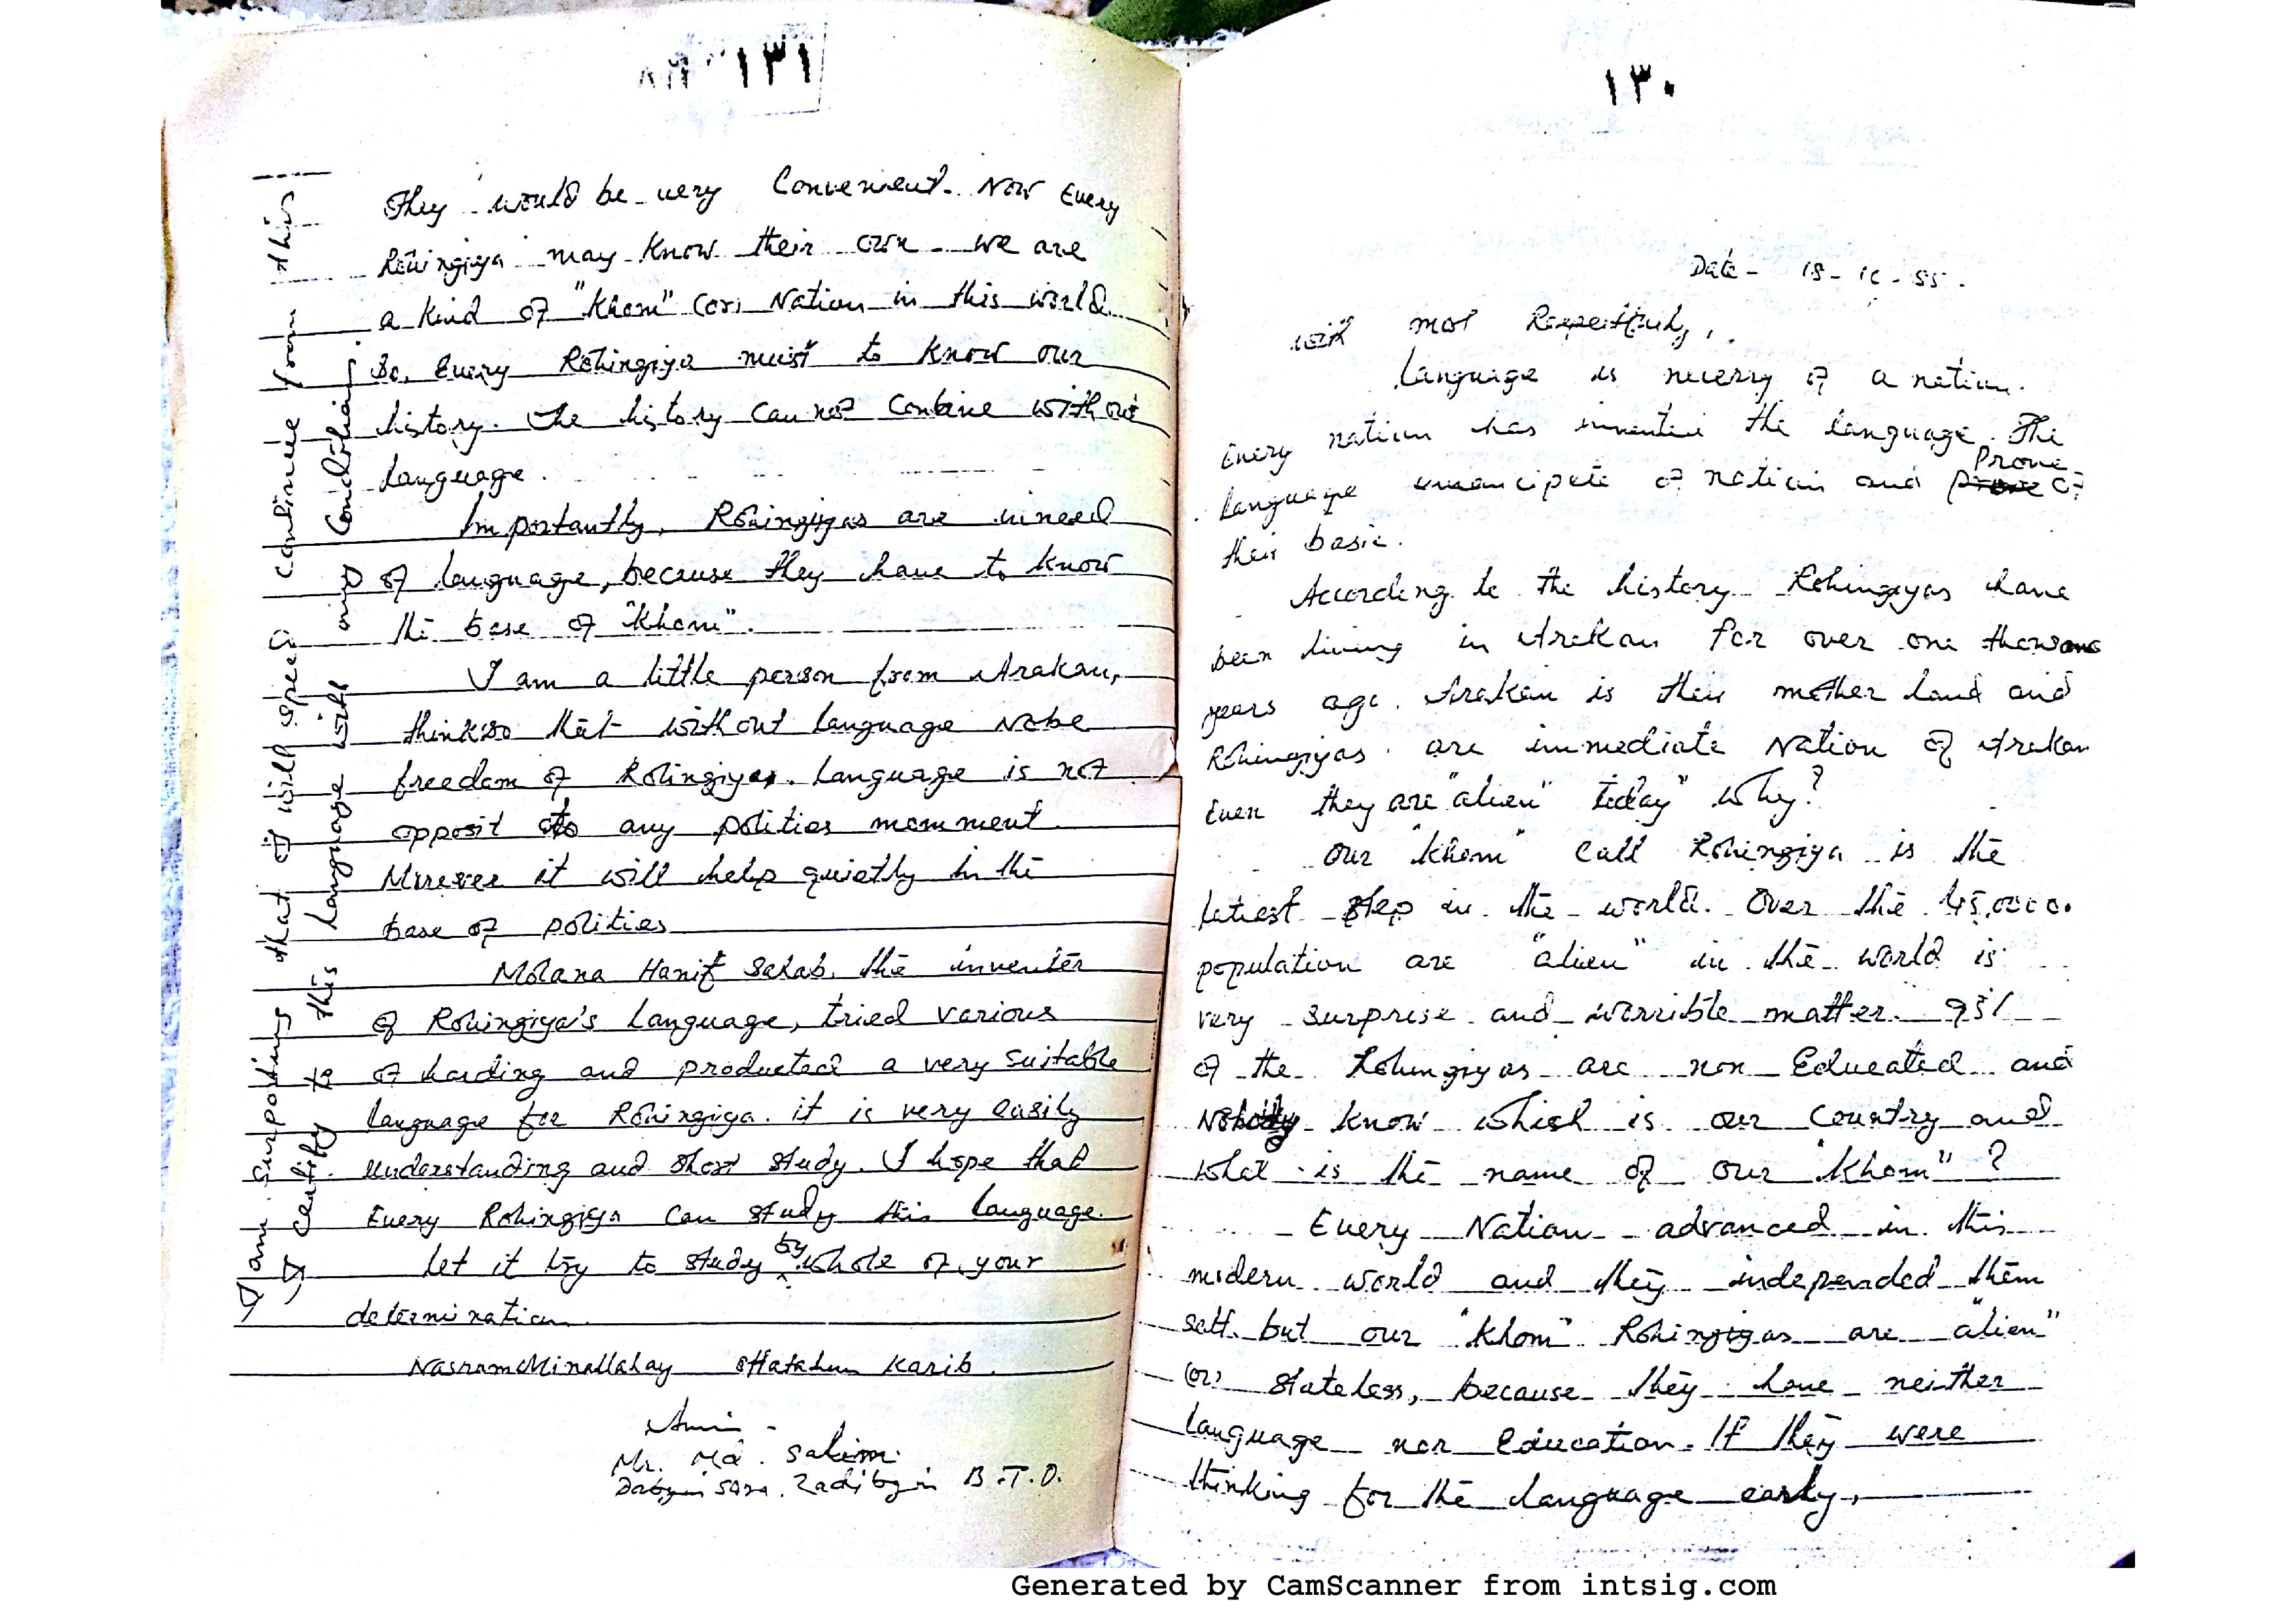 ١٣٠
Date - 18-10-85.
with most Respectfuly,.
Language is necerry of a nation.
Every nation has invented the language. The
language emancipate of nation and prove of
their basic.
According to the history Rohingiyas have
been living in Arakan for over one thousand
years ago. Arakan is their mother land and
Rohingiyas are immediate Nation of Arakan
Even they are "alien" today" why?
our "khom" call Rohingiya is the
latiest step in the world. Over the
population are "alien" in the world is
very surprise and worrible matter. 95%
of the Rohingiyas are non Educated and
Nobody know which is our Country and
what is the name of our "khom"?
Every Nation advanced in this
modern world and they independed them
self. but our "khom" Rohingiyas are "alien"
(or) stateless, because they have neither
language nor Education. If they were
thinking for the language early,
١٣١
They would be very Convenient. Now Every
Rohingiya may know their own - we are
a kind of "Khom" (or) Nation in this world.
So, Every Rohingiya must to know our
history. The history can not Conbine without
language.
Importantly, Rohingiyas are inneed
of language, because they have to know
the base of "Khom".
I am a little person from Arakan,
thinkso that without language Nobe
freedom of Rohingiyas. Language is not
opposit to any polities momment.
Morever it will help quietly in the
base of polities
Molana Hanif Sahab, the inventer
of Rohingiya's language, tried various
of harding and producted a very suitable
language for Rohingiya. it is very easily
understanding and short study. I hope that
Every Rohingiya can study this language.
Let it try to study by whole of your
determination.
NasrumMinallahay Karib.
Amin -
Mr. Md. Salim
B.T.D.
I am surpoting that it will spreed continue from this
I certify to this language with my Conditions.
Generated by CamScanner from intsig.com